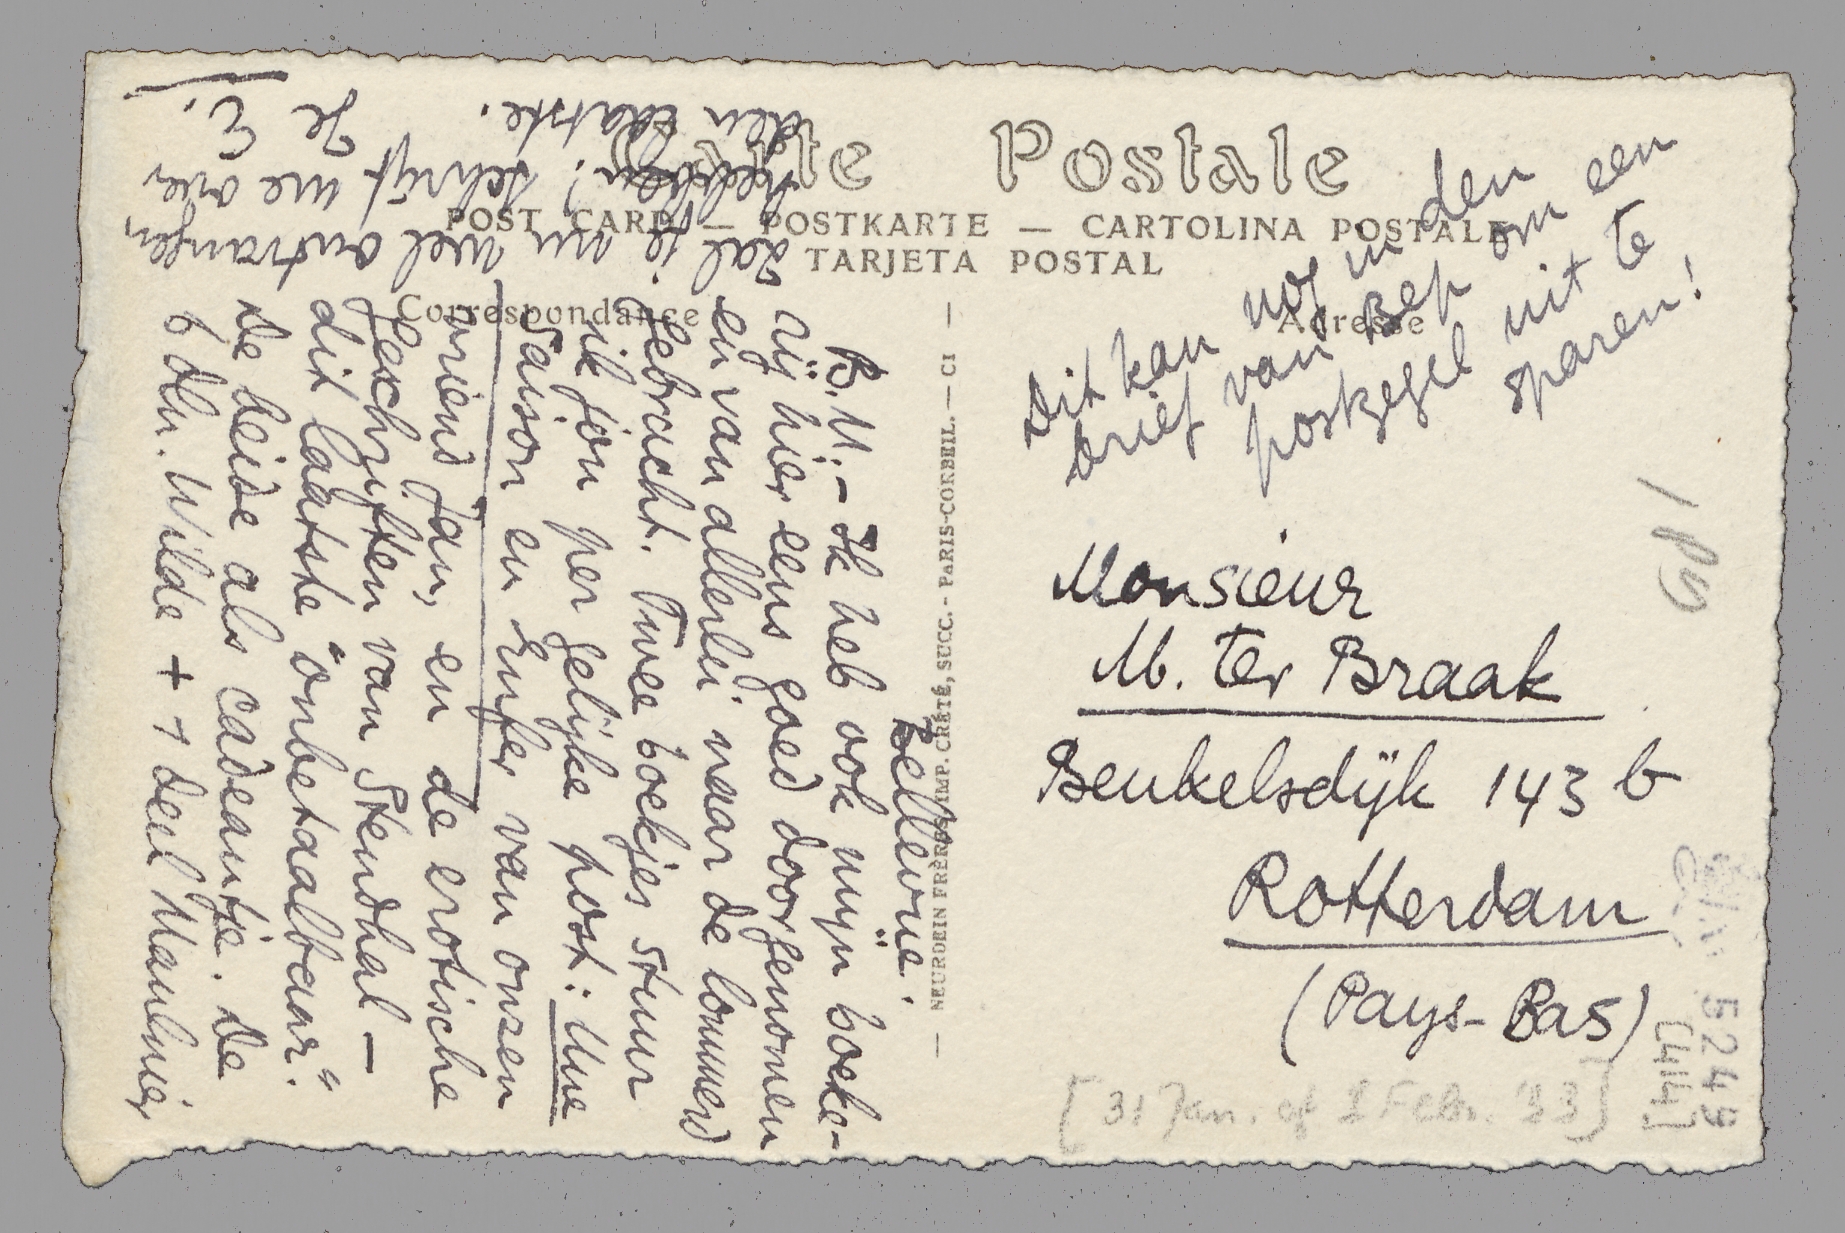 Carte Postale
POST CARD — POSTKARTE — CARTOLINA POSTALE
TARJETA POSTAL
Correspondance
Adresse
— NEURDEIN FRÈRES, IMP. CRÉTÉ, SUCC. - PARIS-CORBEIL. — CI —
Bellevue.
B.M. – Ik heb ook mijn boeke-
rij hier eens goed doorgenomen
en van allerlei naar de lommerd
gebracht. Twee boekjes stuur
ik jou per gelijke post: Une
Saison en Enfer van onzen
vriend Jan, en de erotische
geschriften van Stendhal –
dit laatste "onbetaalbaar".
De beide als cadeautje. De
6 dln. Wilde + 1 deel Maulnier
zal je nu wel ontvangen
hebben? Schrijf me over
den laatste. Je E.
Dit kan nog in den
brief van Bep om een
postzegel uit te
sparen!
Monsieur
M. ter Braak
Beukelsdijk 143 b
Rotterdam
(Pays-Bas)
[31 Jan. of 1 Febr. '33]
5249
[414]